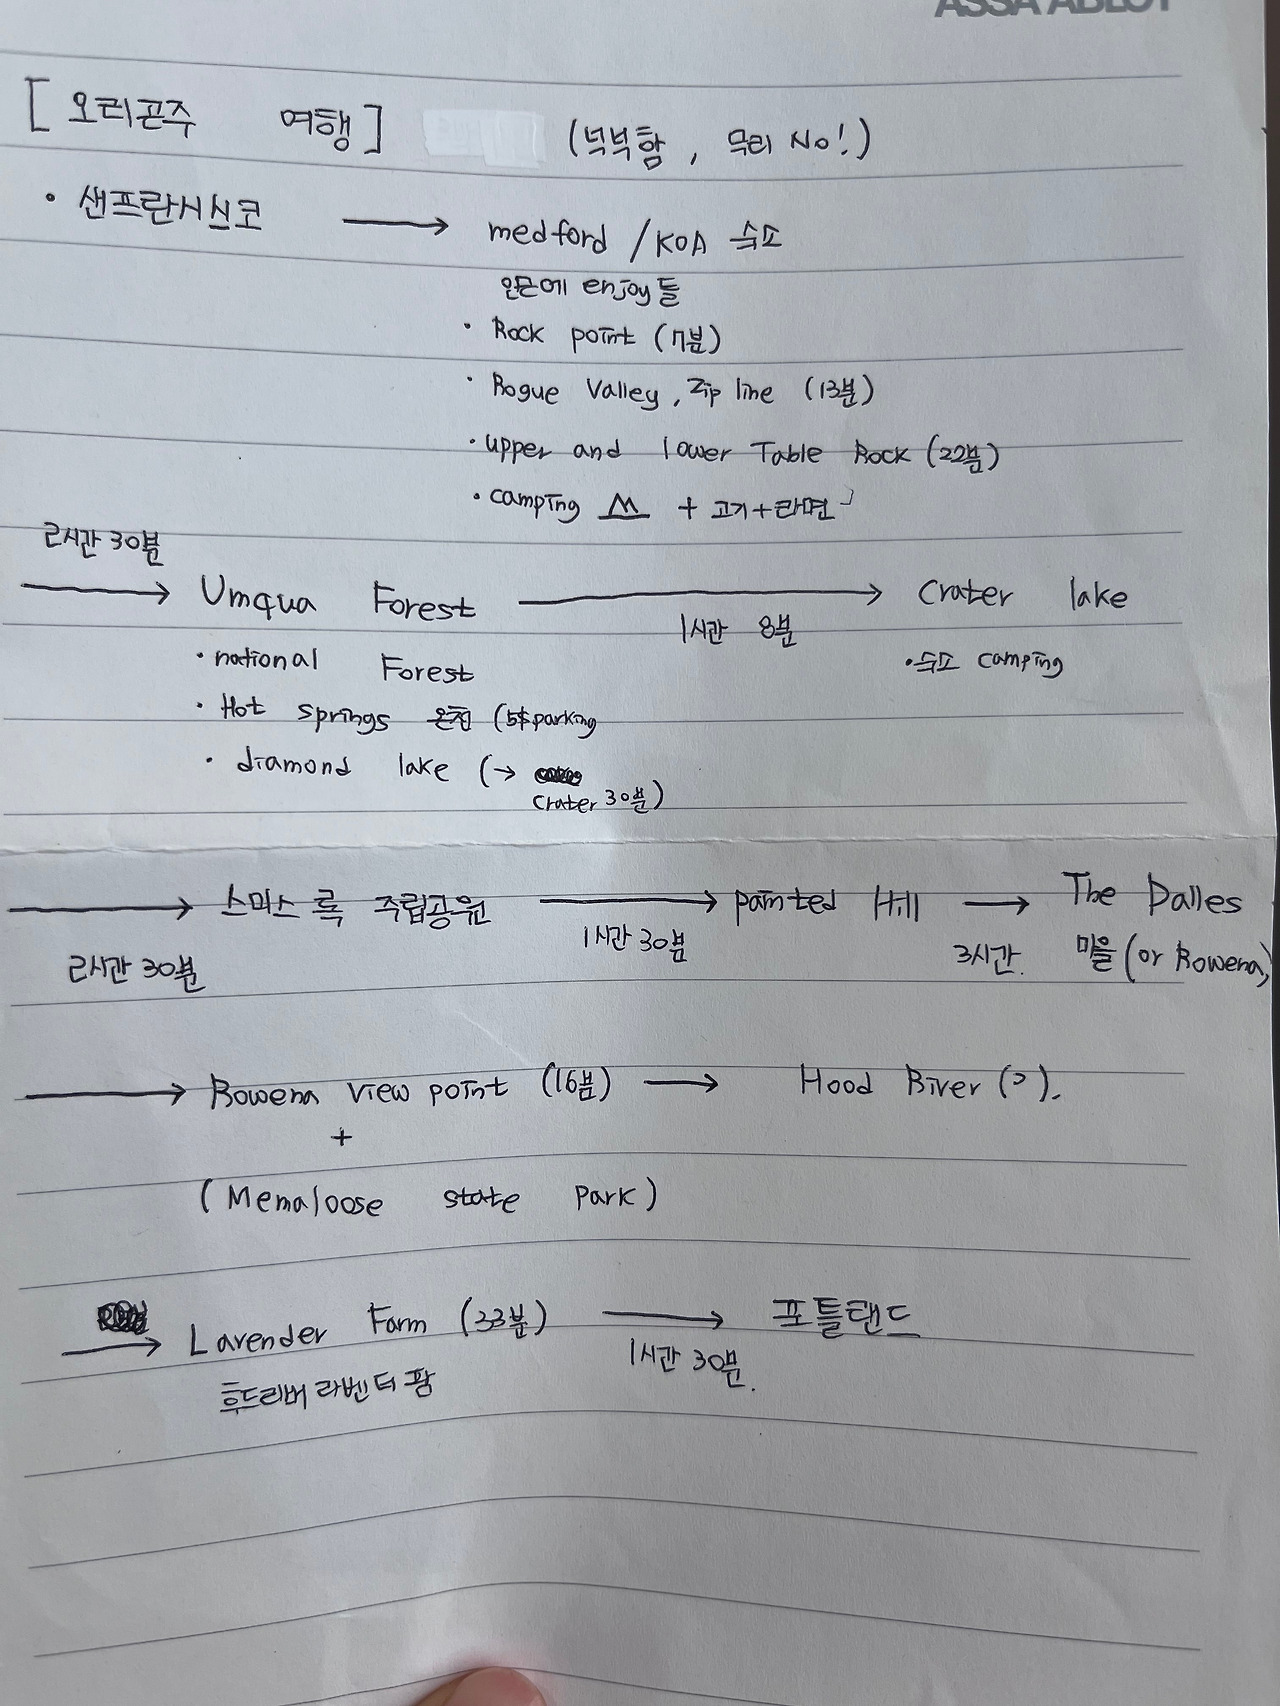 ASSA ABLOY
[ 오리곤주 여행 ] (넉넉함, 무리 No!)
• 샌프란시스코 → medford / KOA 숙소
인근에 enjoy들
• Rock point (7분)
• Rogue Valley, Zip line (13분)
• upper and lower Table Rock (22분)
• camping + 고기+라면
2시간 30분
→ Umqua Forest → Crater lake
1시간 8분
• national Forest • 숙소 camping
• Hot springs 온천 (5$parking
• diamond lake (→
Crater 30분)
→ 스미스 록 주립공원 → painted Hill → The Dalles
2시간 30분 1시간 30분 3시간. 마을 (or Rowena)
→ Rowena view point (16분) → Hood River (?).
+
(Memaloose state park)
→ Lavender Farm (33분) → 포틀랜드
후드리버 라벤더 팜 1시간 30분.